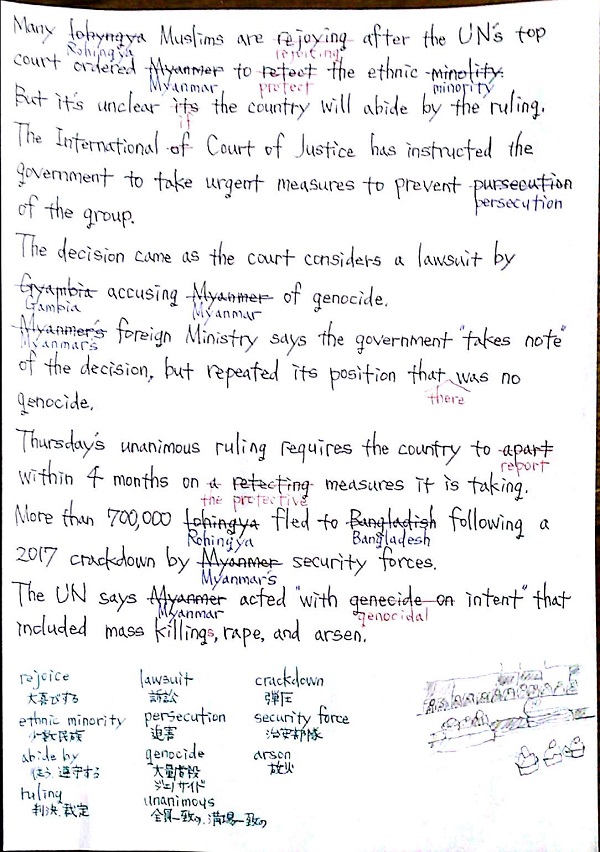 Many Iohyngya Muslims are rejoying after the UN's top
Rohingya rejoicing
court ordered Myanmer to retect the ethnic minolity.
Myanmar protect minority
But it's unclear its the country will abide by the ruling.
if
The International of Court of Justice has instructed the
government to take urgent measures to prevent pursecution
persecution
of the group.
The decision came as the court considers a lawsuit by
Gyambia accusing Myanmer of genocide.
Gambia Myanmar
Myanmer's foreign Ministry says the government "takes note"
Myanmar's
of the decision, but repeated its position that was no
there
genocide.
Thursday's unanimous ruling requires the country to apart
report
within 4 months on a retecting measures it is taking.
the protective
More than 700,000 Iohingya fled to Bangladish following a
Rohingya Bangladesh
2017 crackdown by Myanmer security forces.
Myanmar's
The UN says Myanmer acted "with genecide on intent" that
Myanmar genocidal
included mass killings, rape, and arsen.
rejoice lawsuit crackdown
大喜びする 訴訟 弾圧
ethnic minority persecution security force
少数民族 迫害 治安部隊
abide by genocide arson
従う、遵守する 大量虐殺 放火
ジェノサイド
ruling unanimous
判決、裁定 全員一致の、満場一致の